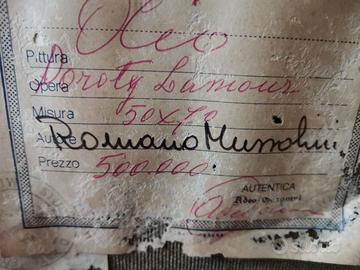 Pittura Olio
Opera Doroty Lamour
Misura 50x70
Autore Romano Mussolini
Prezzo 500.000
AUTENTICA